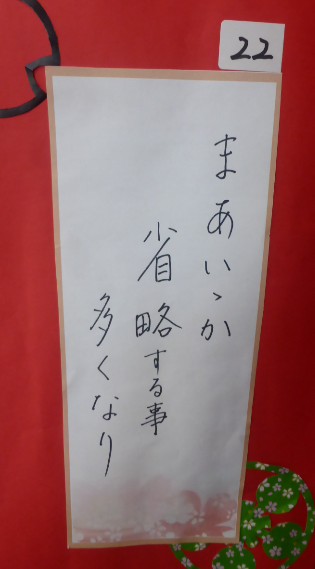 22
まあいゝか
省略する事
多くなり